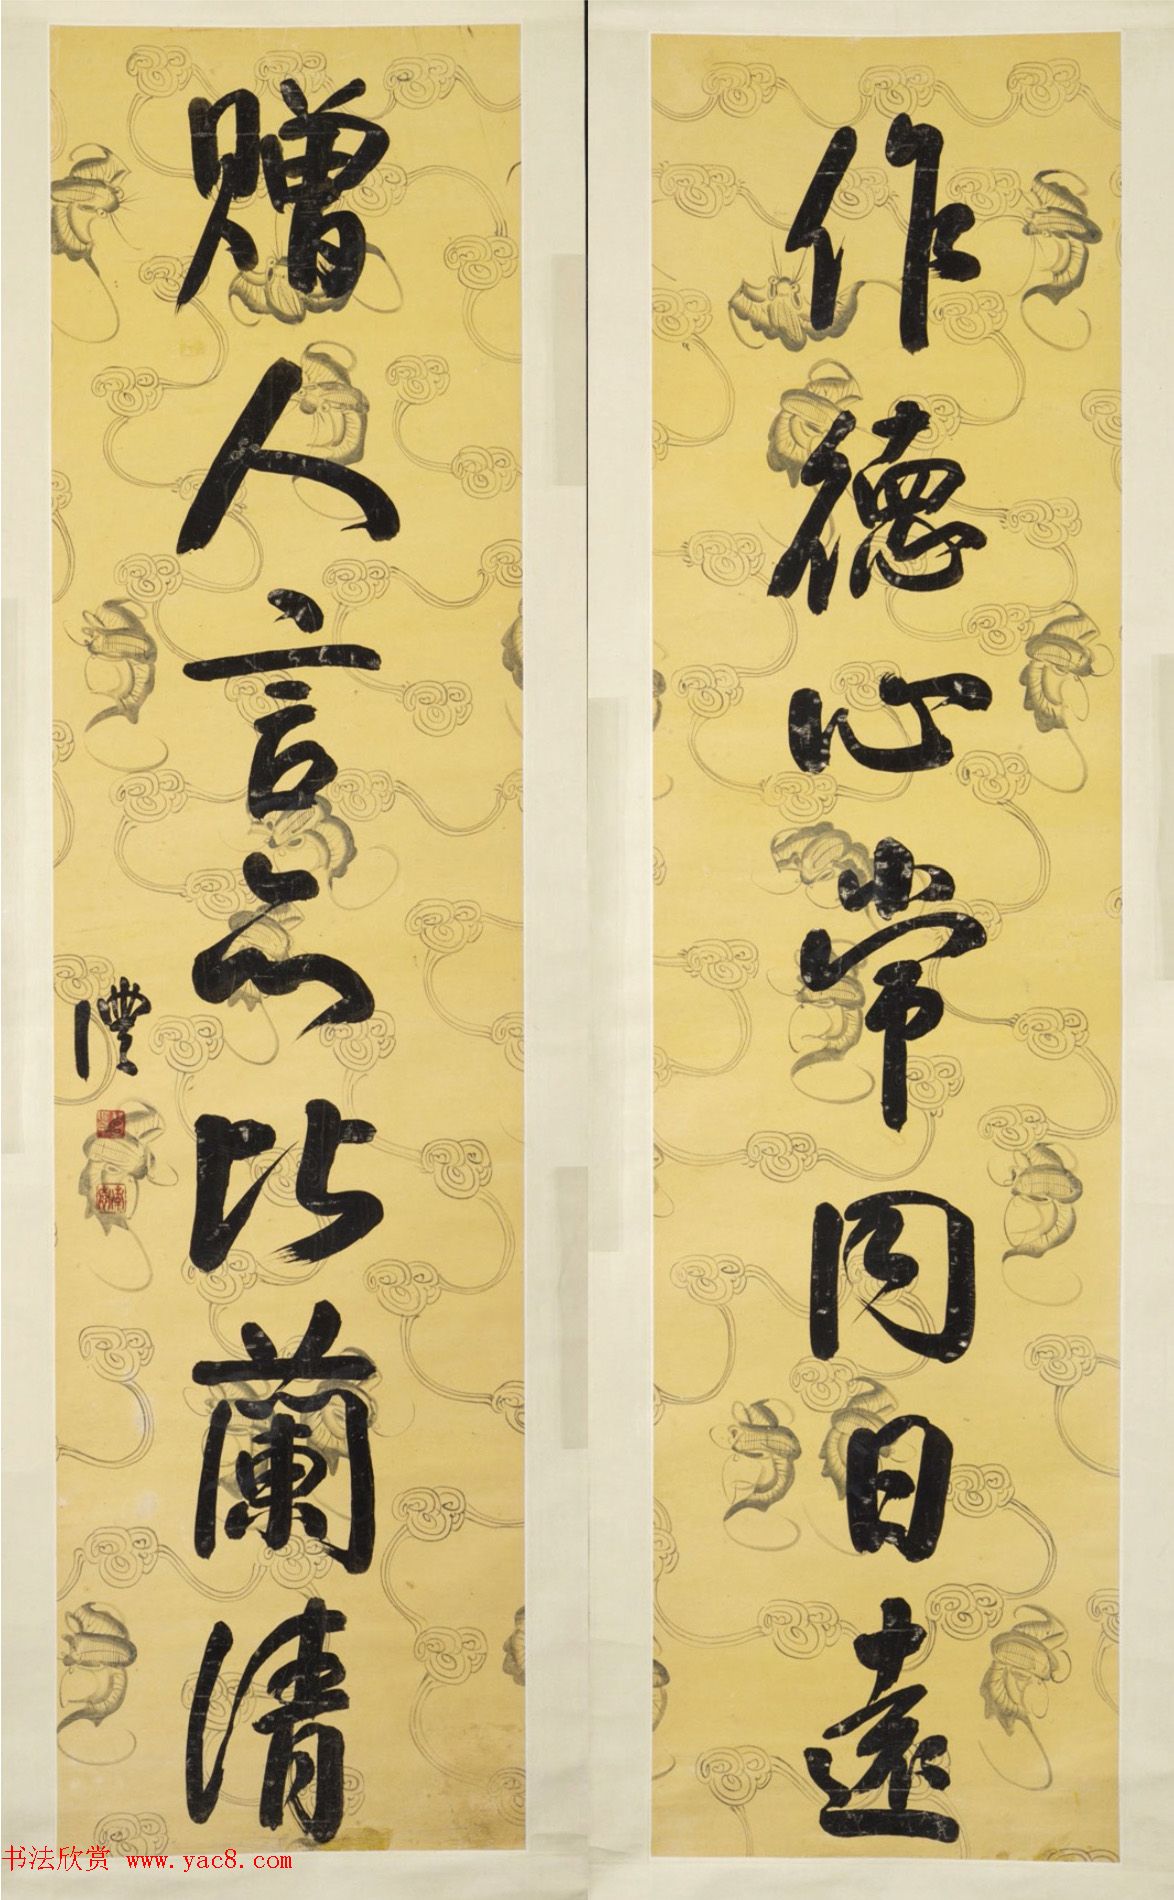 作德心常同日遠
贈人言亦比蘭清
澧
书法欣赏 www.yac8.com